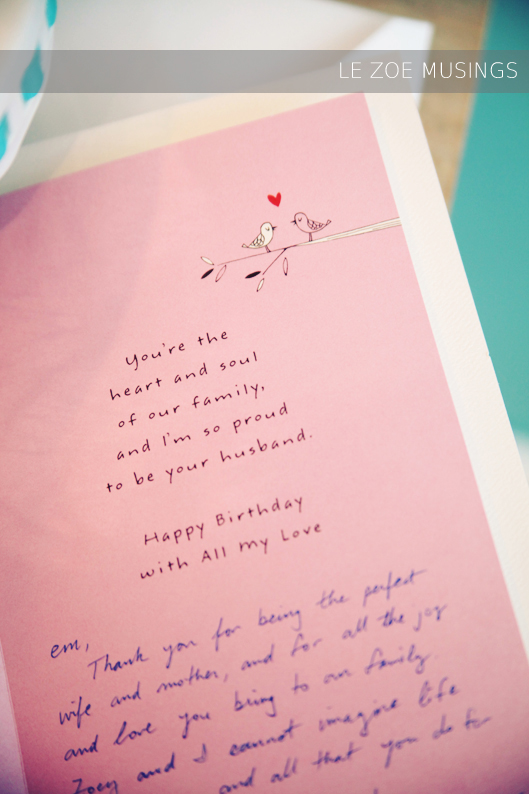 LE ZOE MUSINGS
You're the
heart and soul
of our family,
and I'm so proud
to be your husband.
Happy Birthday
with All My Love
em,
Thank you for being the perfect
wife and mother, and for all the joy
and love you bring to our family.
Zoey and I cannot imagine life
and all that you do for